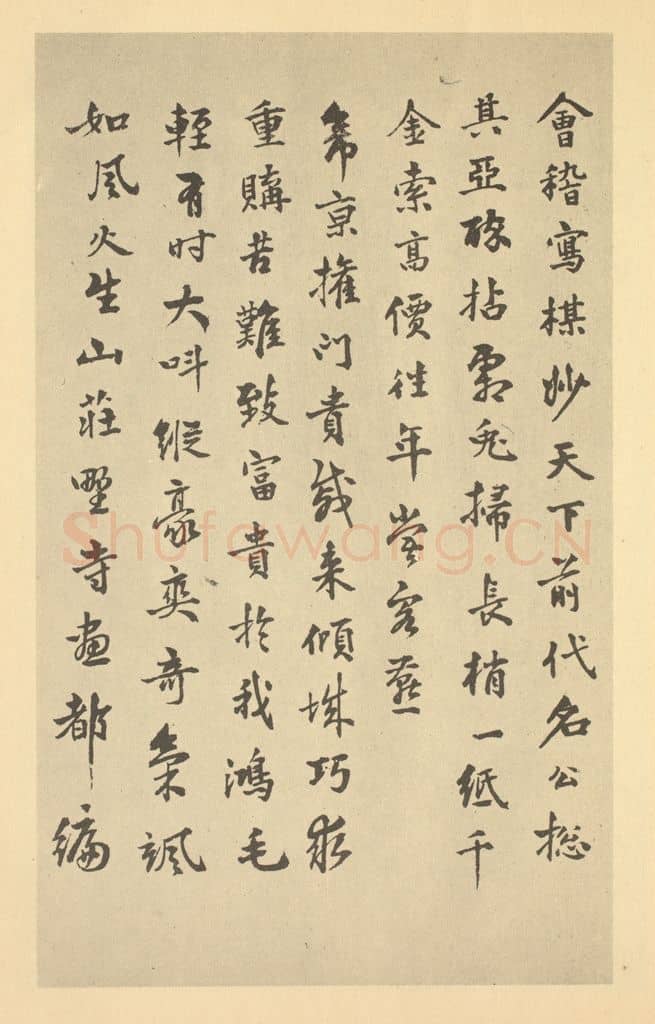 會稽寫棋妙天下前代名公揔
其亞醉拈霜兔掃長梢一紙千
金索高價往年嘗客燕
帝京權門貴戚來傾城巧求
重購苦難致富貴於我鴻毛
輕有时大叫縱豪爽奇氣颯
如風火生山莊墅寺畫都徧
Shufawang.CN